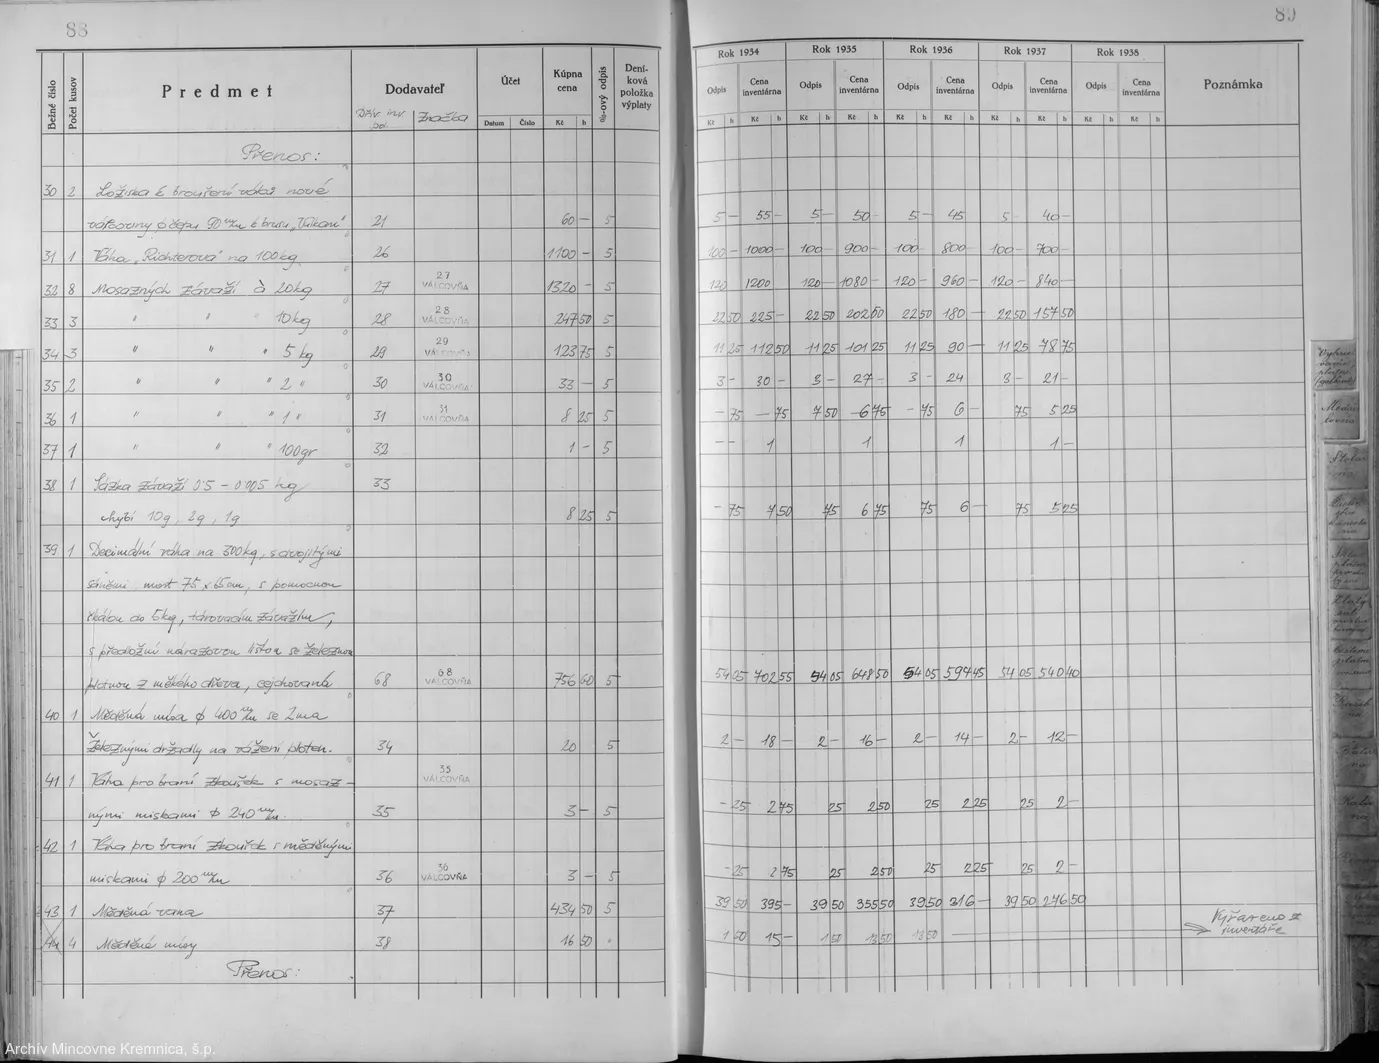 88
89
Bežné číslo Počet kusov Predmet Dodavateľ Účet Kúpna cena %-ový odpis Deníková položka výplaty
Značka Datum Číslo Kč h
Rok 1934 Rok 1935 Rok 1936 Rok 1937 Rok 1938 Poznámka
Odpis Cena inventárna Odpis Cena inventárna Odpis Cena inventárna Odpis Cena inventárna Odpis Cena inventárna
Kč h Kč h Kč h Kč h Kč h Kč h Kč h Kč h Kč h Kč h
Přenos:
30 2 Ložiska k broušení válců nové
21 60 — 5 5 — 55 — 5 — 50 — 5 — 45 5 — 40 —
31 1 Váha „Richterova" na 100 kg 26 1100 — 5 100 — 1000 — 100 — 900 — 100 — 800 — 100 — 700 —
32 8 Mosazných závaží à 20 kg 27 27 VÁLCOVŇA 1320 — 5 120 1200 120 — 1080 — 120 — 960 — 120 — 840 —
33 3 " " " 10 kg 28 28 VÁLCOVŇA 247 50 5 22 50 225 — 22 50 202 50 22 50 180 — 22 50 157 50
34 3 " " " 5 kg 29 29 VÁLCOVŇA 123 75 5 11 25 112 50 11 25 101 25 11 25 90 — 11 25 78 75
35 2 " " " 2 " 30 30 VÁLCOVŇA 33 — 5 3 — 30 — 3 — 27 — 3 — 24 3 — 21 —
36 1 " " " 1 " 31 31 VÁLCOVŇA 8 25 5 — 75 — 75 7 50 6 75 — 75 6 — 75 5 25
37 1 " " " 100 gr 32 1 — 5 — — 1 1 1 1 —
38 1 Sázka závaží 0.5 – 0.005 kg 33
chybí 10g, 2g, 1g 8 25 5 — 75 7 50 75 6 75 75 6 — 75 5 25
39 1 Decimální váha na 300 kg, s dvojitými
most 75 x 65 cm, s pomocnou
do 5 kg, závažím,
s předložní nárazovou lištou se železnou
plotnou z měkého dřeva, cejchovaná 68 68 VÁLCOVŇA 756 60 5 54 05 702 55 54 05 648 50 54 05 594 45 54 05 540 40
40 1 Měděná mísa ϕ 400 mm se 2ma
železnými držadly na vážení ploten. 34 20 5 2 — 18 — 2 — 16 — 2 — 14 — 2 — 12 —
41 1 Váha pro braní zkoušek s mosaz- 35 VÁLCOVŇA
nými miskami ϕ 240 mm. 35 3 — 5 — 25 2 75 25 2 50 25 2 25 25 2 —
42 1 Váha pro braní zkoušek s měděnými
miskami ϕ 200 mm 36 36 VÁLCOVŇA 3 — 5 — 25 2 75 25 2 50 25 2 25 25 2 —
43 1 Měděná vana 37 434 50 5 39 50 395 — 39 50 355 50 39 50 316 — 39 50 276 50
44 4 Měděné mísy 38 16 50 " 1 50 15 — 1 50 13 50 13 50 Vyřazeno z
inventáře
Přenos:
Archív Mincovne Kremnica, š.p.